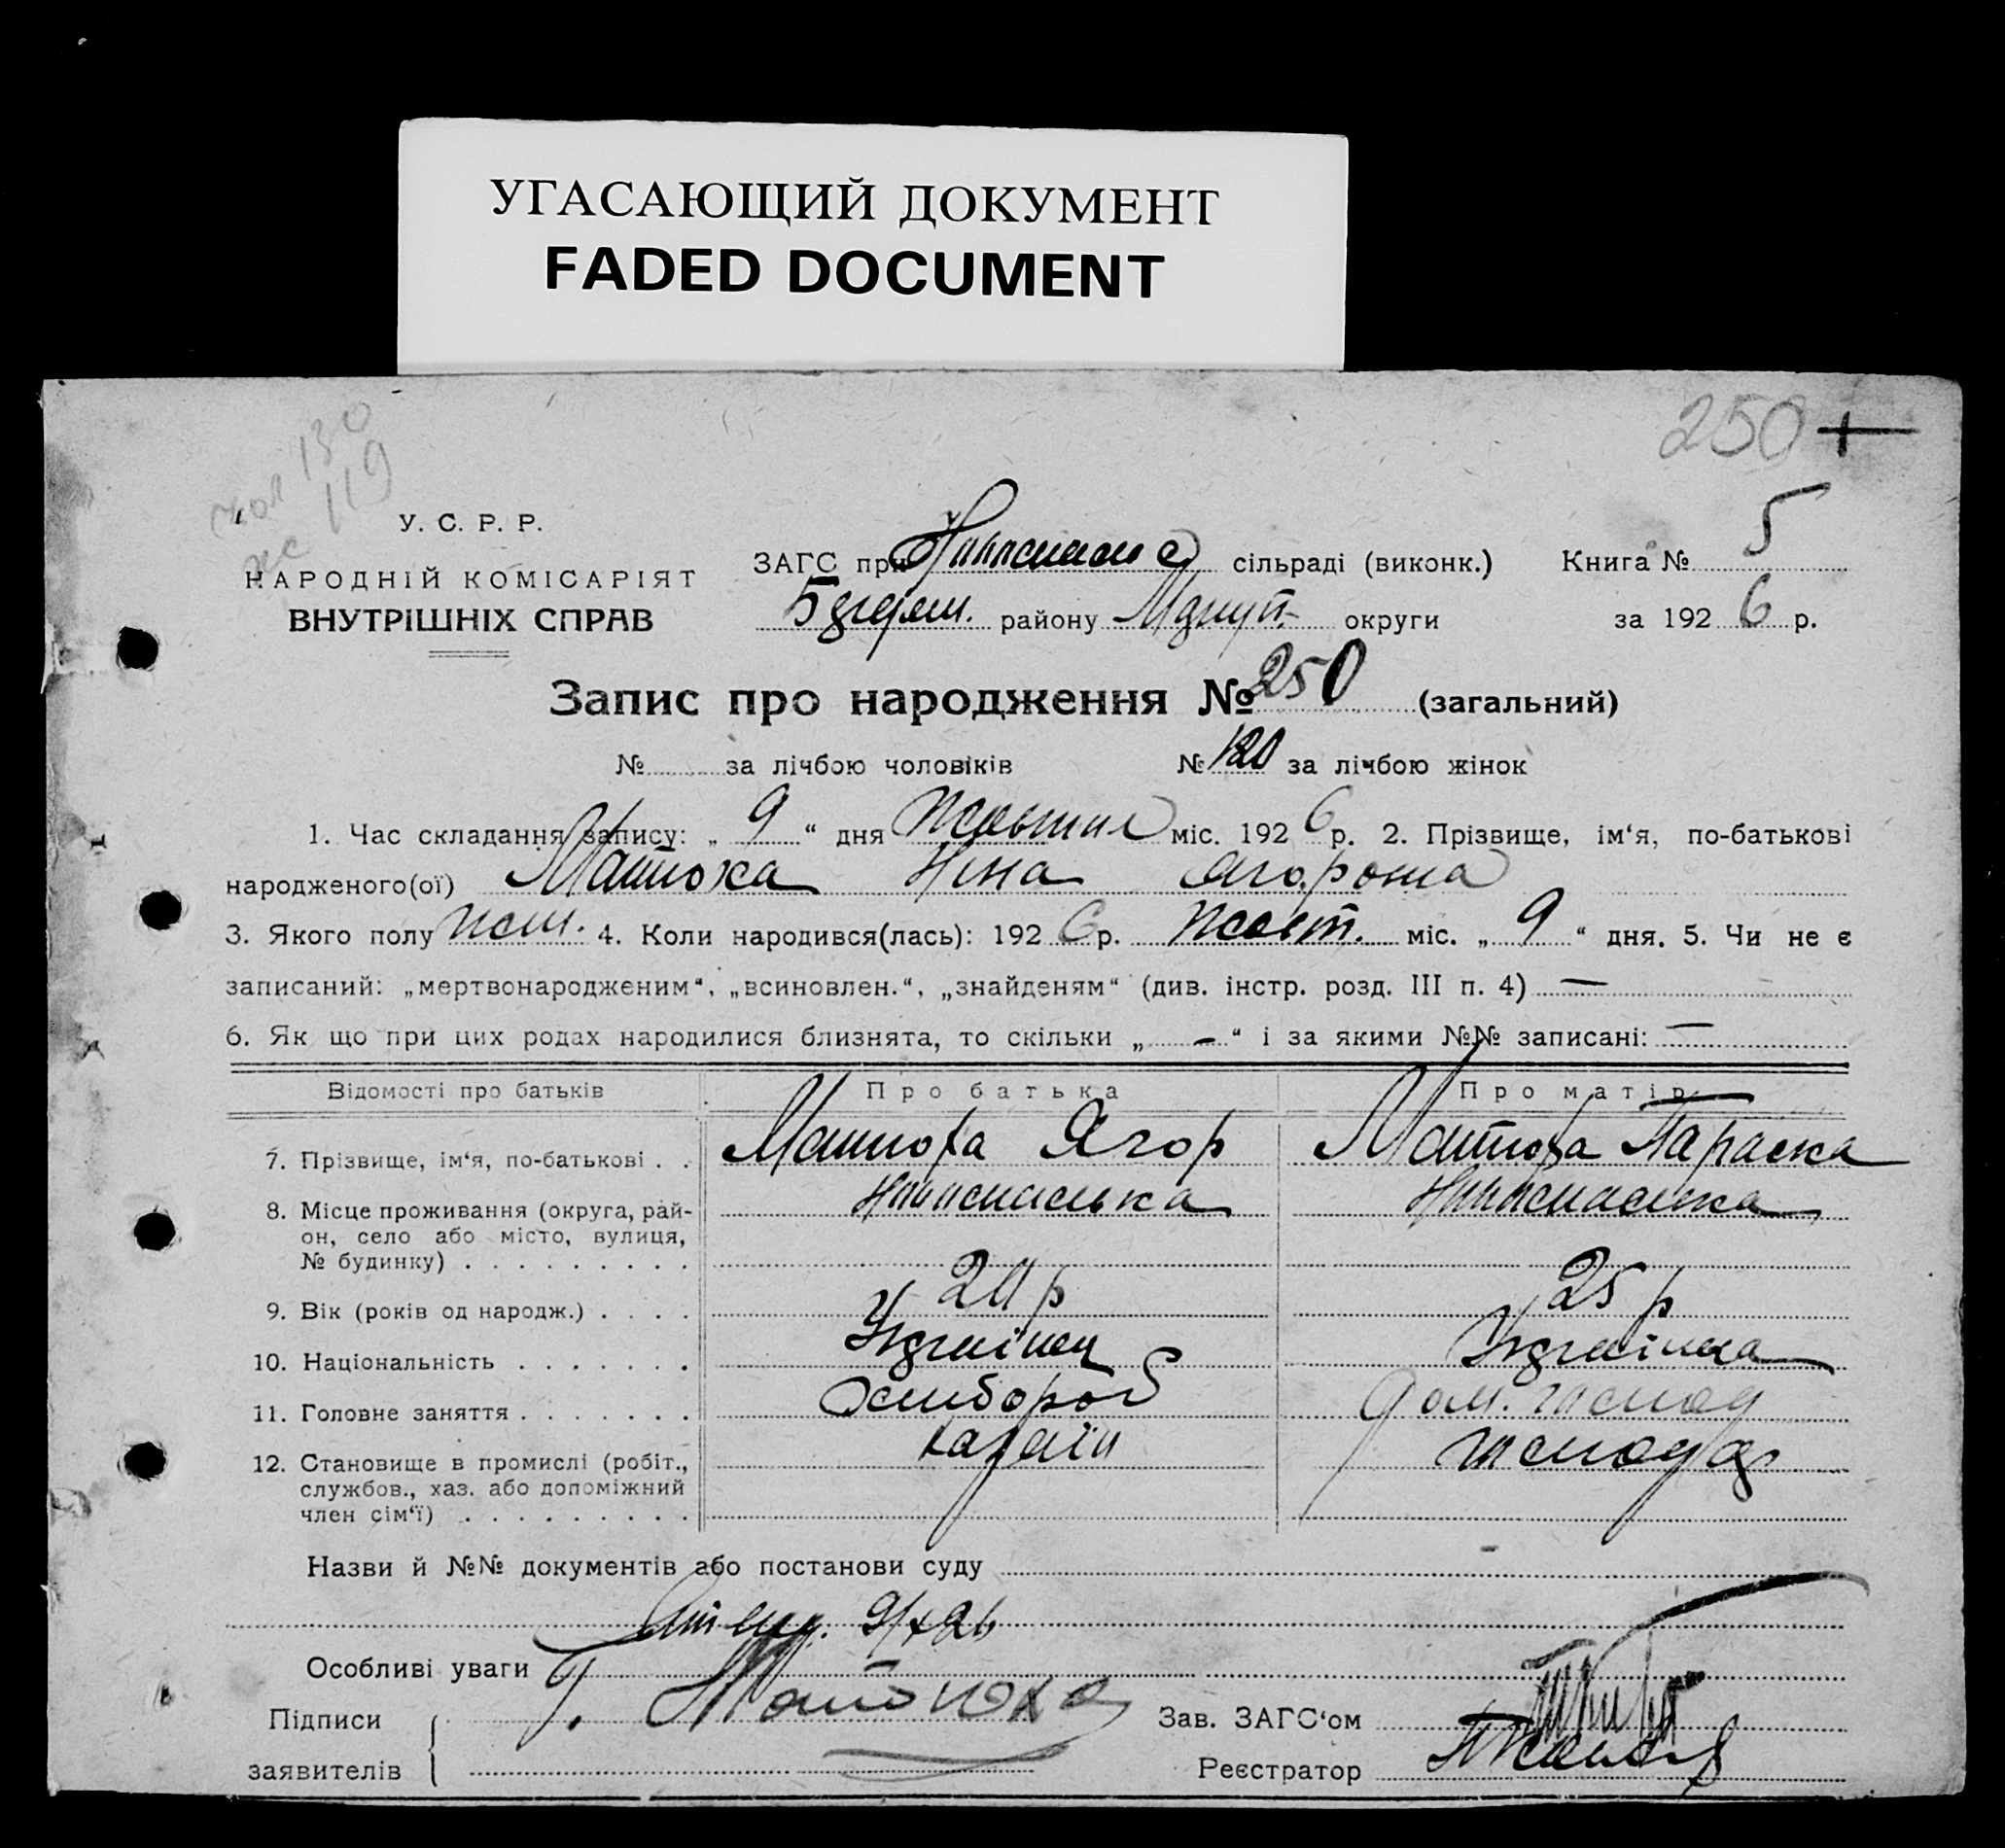 УГАСАЮЩИЙ ДОКУМЕНТ
FADED DOCUMENT
250
чол 130
жс 119
У. С. Р. Р.
НАРОДНІЙ КОМІСАРІЯТ
ВНУТРІШНІХ СПРАВ
ЗАГС при сільраді (виконк.) Книга № 5
району округи за 1926 р.
Запис про народження № 250 (загальний)
№ за лічбою чоловіків № 120 за лічбою жінок
1. Час складання запису: „ 9 “ дня Жовтня міс. 1926 р. 2. Прізвище, ім‘я, по-батькові
народженого(ої) Матюха Ніна Ягоровна
3. Якого полу жен. 4. Коли народився(лась): 1926 р. Жовт. міс. „ 9 “ дня. 5. Чи не є
записаний: „мертвонародженим“, „всиновлен.“, „знайденям“ (див. інстр. розд. III п. 4) —
6. Як що при цих родах народилися близнята, то скільки „ — “ і за якими №№ записані: —
Відомості про батьків Про батька Про матір
7. Прізвище, ім‘я, по-батькові . . Матюха Ягор Матюха Параска
8. Місце проживання (округа, рай-
он, село або місто, вулиця,
№ будинку) . . . . . . . . .
9. Вік (років од народж.) . . . . р 25 р
10. Національність . . . . . . . Українец Українка
11. Головне заняття . . . . . . . Хлибороб Дом. господ
12. Становище в промислі (робіт., хазяїн господ
службов., хаз. або допоміжний
член сім‘ї) . . . . . . . . .
Назви й №№ документів або постанови суду -
9/X 26
Особливі уваги
Підписи Г. Матюха Зав. ЗАГС‘ом
заявителів Реєстратор